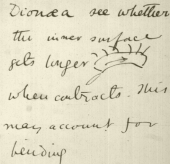 Dionæa see whether
the inner surface
gets larger
when contracts. This
may account for
bending